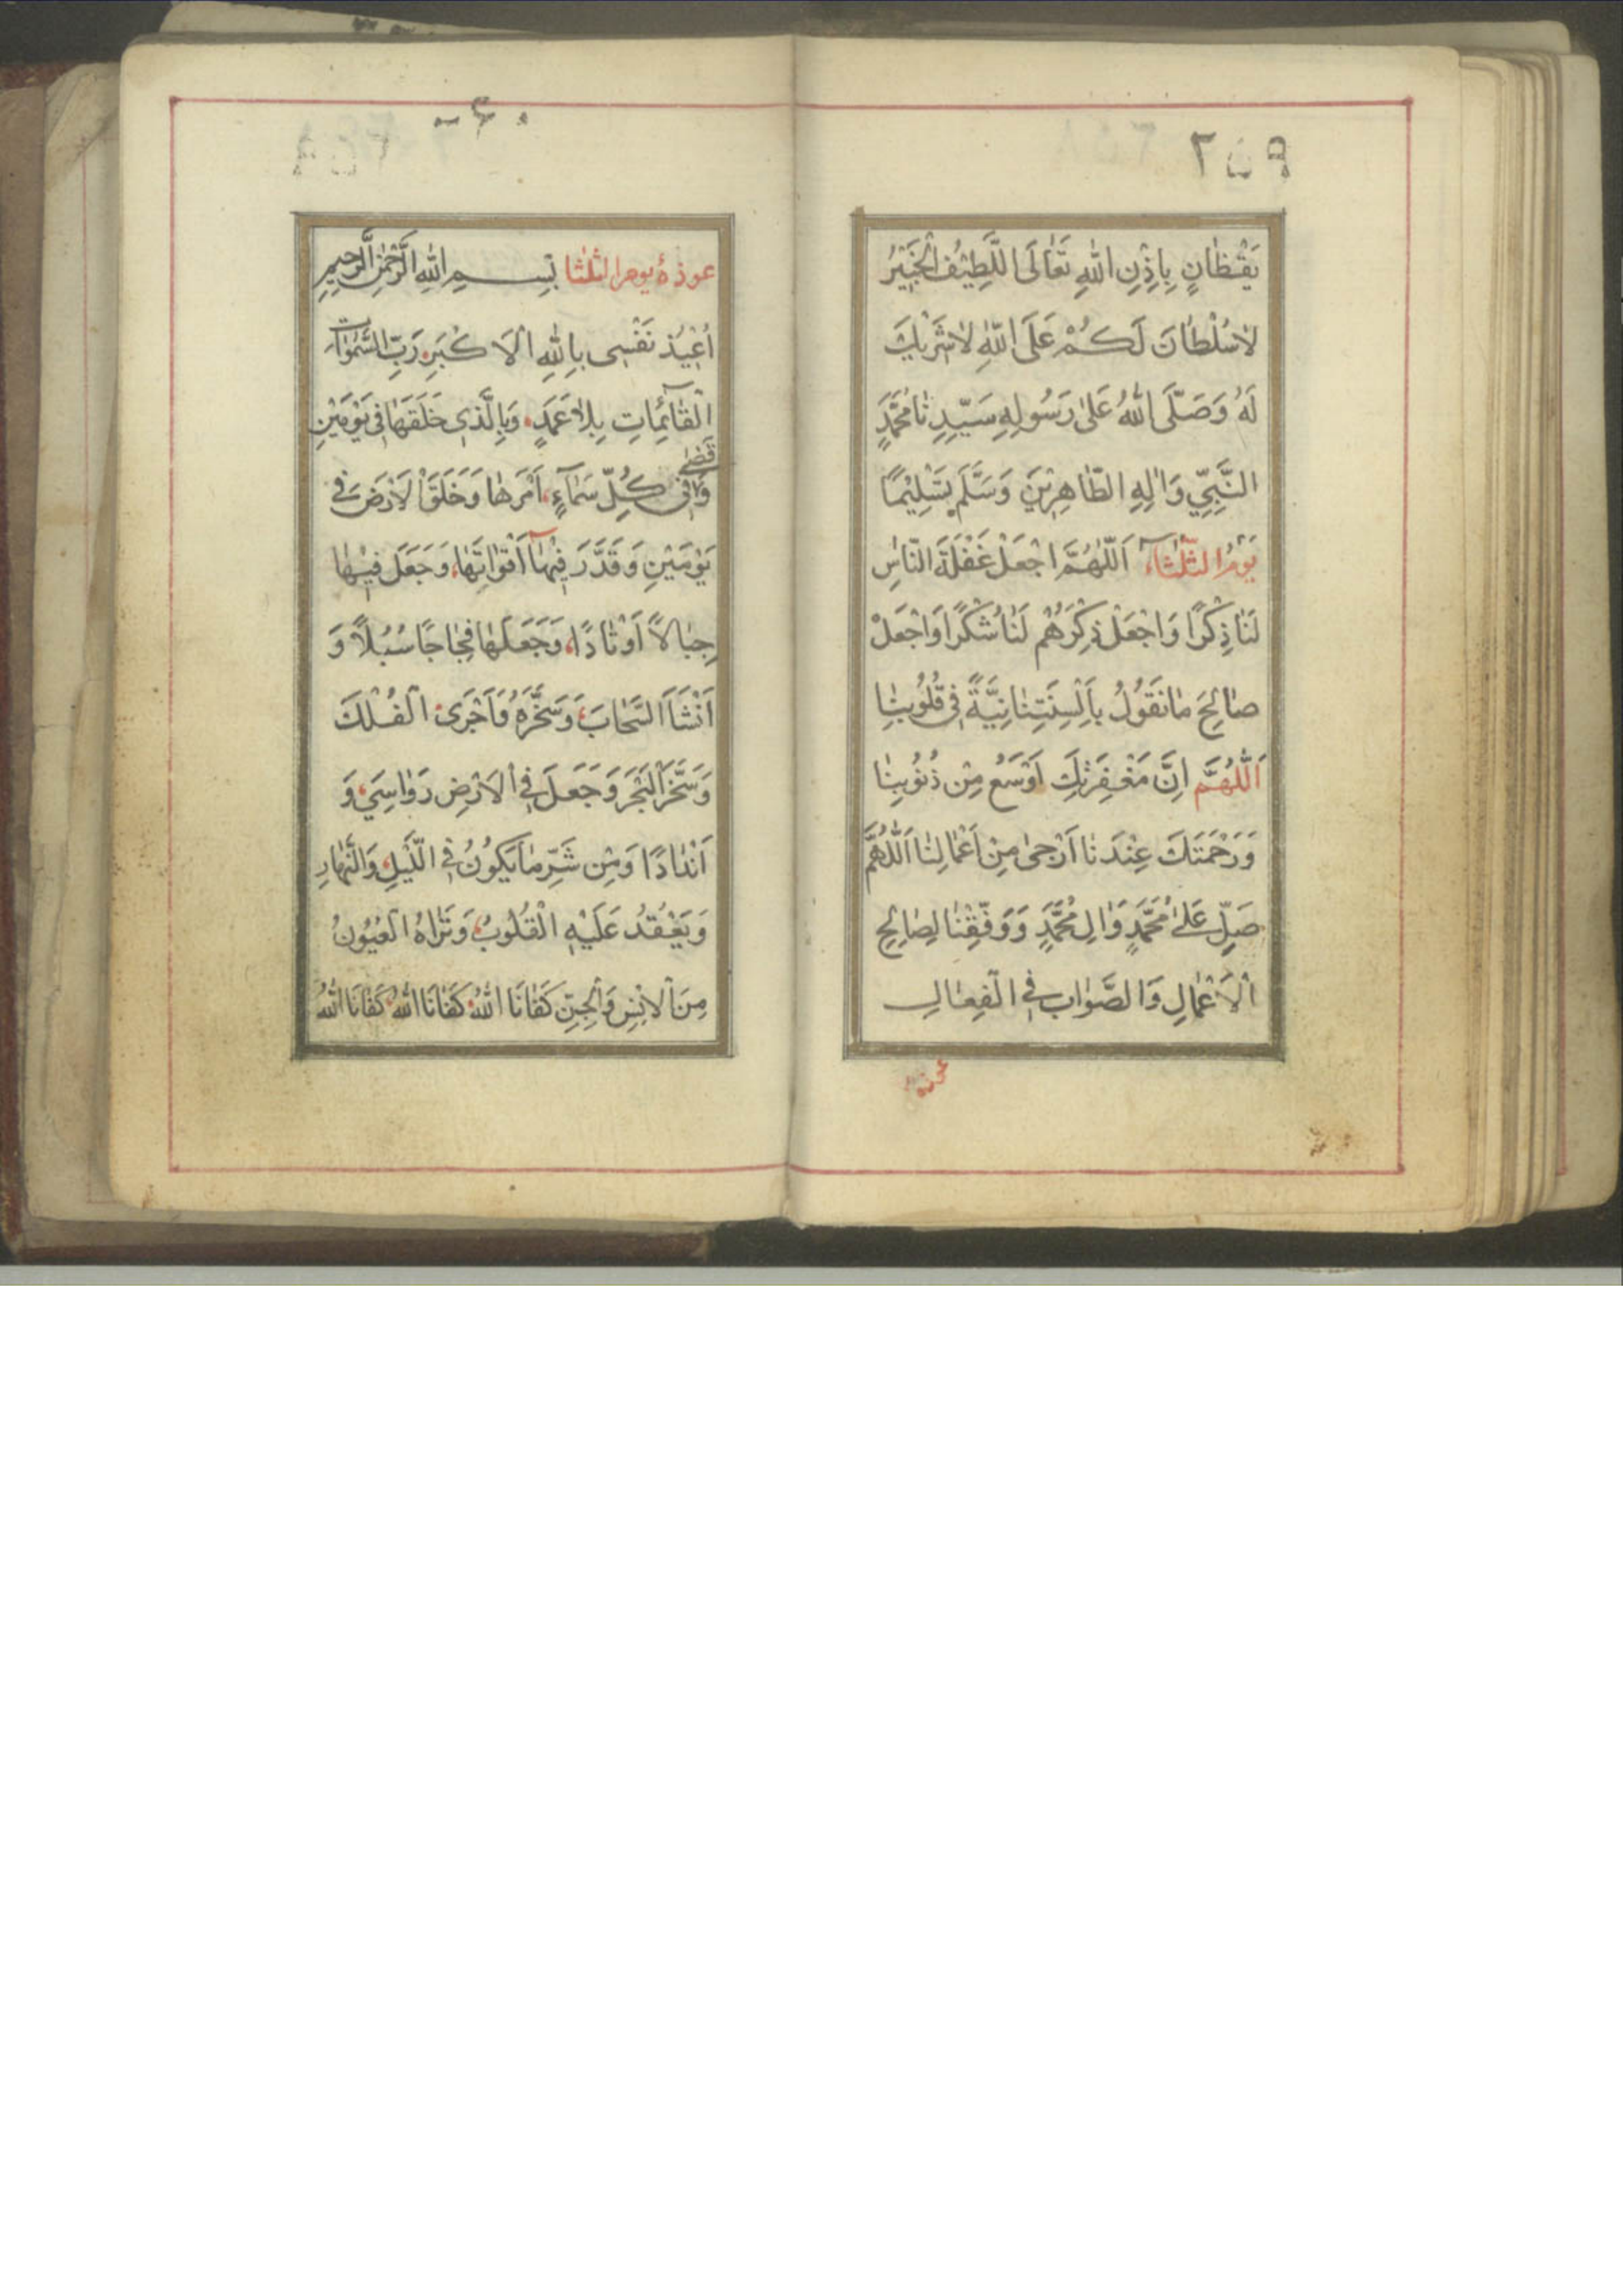 ٢٥٩
يَقْظَانٍ بِاِذْنِ اللهِ تَعَالَى اللَّطِيْفُ الْخَبِيْرُ
لَاسُلْطَانَ لَكُمْ عَلَى اللهِ لَاشَرِيْكَ
لَهُ وَصَلَّى اللهُ عَلَى رَسُولِهِ سَيِّدِنَا مُحَمَّدٍ
النَّبِيِّ وَاٰلِهِ الطَّاهِرِيْنَ وَسَلَّمَ تَسْلِيْمًا
يَوْمُ الثَّلٰثَاءِ اَللّٰهُمَّ اجْعَلْ غَفْلَةَ النَّاسِ
لَنَا ذِكْرًا وَاجْعَلْ ذِكْرَهُمْ لَنَا شُكْرًا وَاجْعَلْ
صَالِحَ مَا نَقُولُ بِاَلْسِنَتِنَا نِيَّةً فِي قُلُوبِنَا
اَللّٰهُمَّ اِنَّ مَغْفِرَتَكَ اَوْسَعُ مِنْ ذُنُوْبِنَا
وَرَحْمَتَكَ عِنْدَنَا اَرْجٰى مِنْ اَعْمَالِنَا اَللّٰهُمَّ
صَلِّ عَلٰى مُحَمَّدٍ وَاٰلِ مُحَمَّدٍ وَوَفِّقْنَا لِصَالِحِ
الْاَعْمَالِ وَالصَّوَابِ فِي الْفِعَالِ
عوذه
٢٦٠
عوذة يوم الثلثا بِسْمِ اللهِ الرَّحْمٰنِ الرَّحِيْمِ
اُعِيْذُ نَفْسِى بِاللهِ الْاَكْبَرِ رَبِّ السَّمٰوَاتِ
الْقَائِمَاتِ بِلَا عَمَدٍ وَبِالَّذِى خَلَقَهَا فِى يَوْمَيْنِ
وَقَضٰى فِى كُلِّ سَمَاءٍ اَمْرَهَا وَخَلَقَ الْاَرْضَ فِى
يَوْمَيْنِ وَقَدَّرَ فِيْهَا اَقْوَاتَهَا وَجَعَلَ فِيْهَا
جِبَالًا اَوْتَادًا وَجَعَلَهَا فِجَاجًا سُبُلًا وَ
اَنْشَاَ السَّحَابَ وَسَخَّرَهُ وَاَجْرَى الْفُلْكَ
وَسَخَّرَ الْبَحْرَ وَجَعَلَ فِى الْاَرْضِ رَوَاسِيَ وَ
اَنْدَادًا وَمِنْ شَرِّ مَا يَكُونُ فِى اللَّيْلِ وَالنَّهَارِ
وَيَعْقُدُ عَلَيْهِ الْقُلُوبُ وَتَرَاهُ الْعُيُونُ
مِنَ الْاِنْسِ وَالْجِنِّ كَفَانَا اللهُ كَفَانَا اللهُ كَفَانَا اللهُ